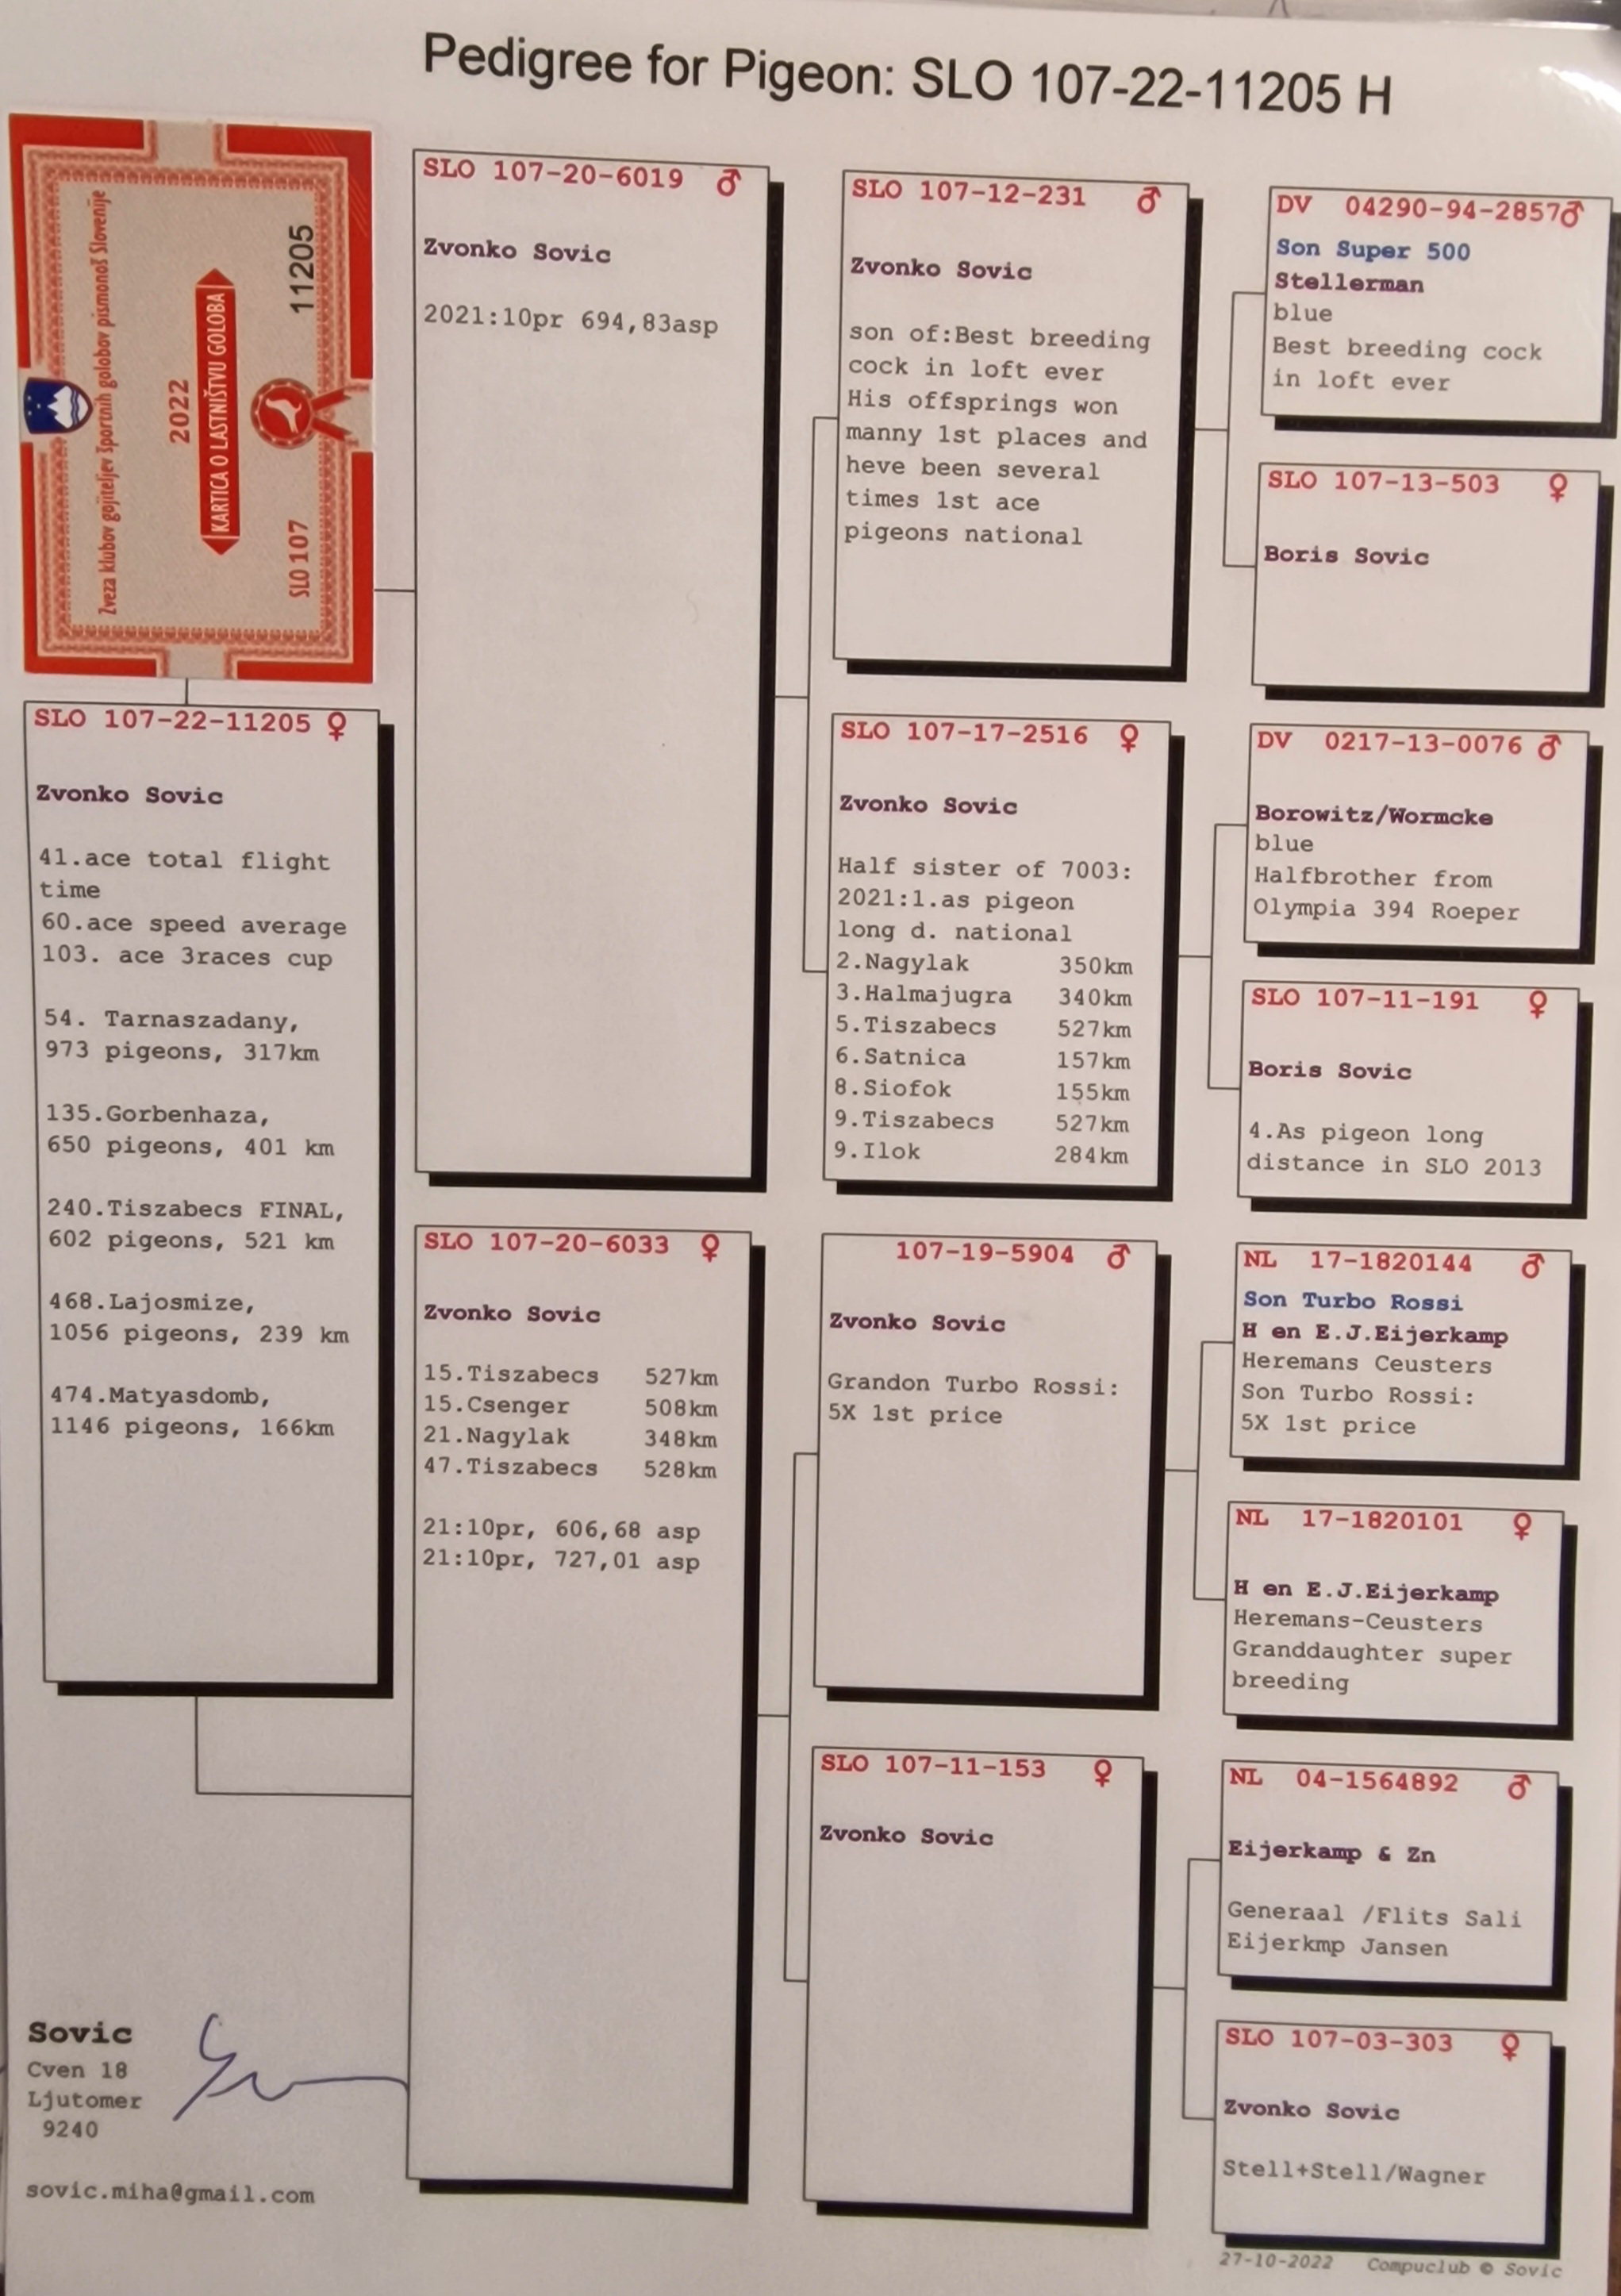 Pedigree for Pigeon: SLO 107-22-11205 H
Zveza klubov gojiteljev športnih golobov pismonoš Slovenije
2022
KARTICA O LASTNIŠTVU GOLOBA
SLO 107 11205
SLO 107-22-11205 ♀
Zvonko Sovic
41.ace total flight
time
60.ace speed average
103. ace 3races cup
54. Tarnaszadany,
973 pigeons, 317km
135.Gorbenhaza,
650 pigeons, 401 km
240.Tiszabecs FINAL,
602 pigeons, 521 km
468.Lajosmize,
1056 pigeons, 239 km
474.Matyasdomb,
1146 pigeons, 166km
SLO 107-20-6019 ♂
Zvonko Sovic
2021:10pr 694,83asp
SLO 107-20-6033 ♀
Zvonko Sovic
15.Tiszabecs 527km
15.Csenger 508km
21.Nagylak 348km
47.Tiszabecs 528km
21:10pr, 606,68 asp
21:10pr, 727,01 asp
SLO 107-12-231 ♂
Zvonko Sovic
son of:Best breeding
cock in loft ever
His offsprings won
manny 1st places and
heve been several
times 1st ace
pigeons national
SLO 107-17-2516 ♀
Zvonko Sovic
Half sister of 7003:
2021:1.as pigeon
long d. national
2.Nagylak 350km
3.Halmajugra 340km
5.Tiszabecs 527km
6.Satnica 157km
8.Siofok 155km
9.Tiszabecs 527km
9.Ilok 284km
107-19-5904 ♂
Zvonko Sovic
Grandon Turbo Rossi:
5X 1st price
SLO 107-11-153 ♀
Zvonko Sovic
DV 04290-94-2857♂
Son Super 500
Stellerman
blue
Best breeding cock
in loft ever
SLO 107-13-503 ♀
Boris Sovic
DV 0217-13-0076 ♂
Borowitz/Wormcke
blue
Halfbrother from
Olympia 394 Roeper
SLO 107-11-191 ♀
Boris Sovic
4.As pigeon long
distance in SLO 2013
NL 17-1820144 ♂
Son Turbo Rossi
H en E.J.Eijerkamp
Heremans Ceusters
Son Turbo Rossi:
5X 1st price
NL 17-1820101 ♀
H en E.J.Eijerkamp
Heremans-Ceusters
Granddaughter super
breeding
NL 04-1564892 ♂
Eijerkamp & Zn
Generaal /Flits Sali
Eijerkmp Jansen
SLO 107-03-303 ♀
Zvonko Sovic
Stell+Stell/Wagner
Sovic
Cven 18
Ljutomer
9240
sovic.miha@gmail.com
27-10-2022 Compuclub © Sovic